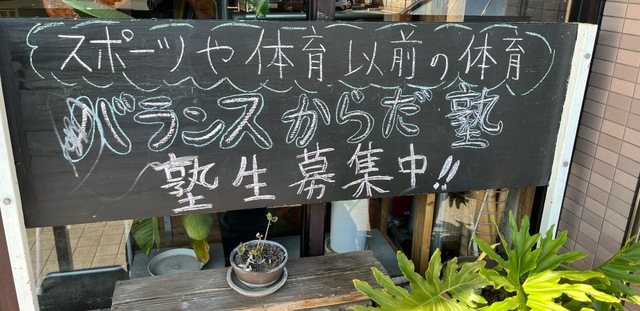 スポーツや体育以前の体育
バランスからだ塾
塾生募集中!!